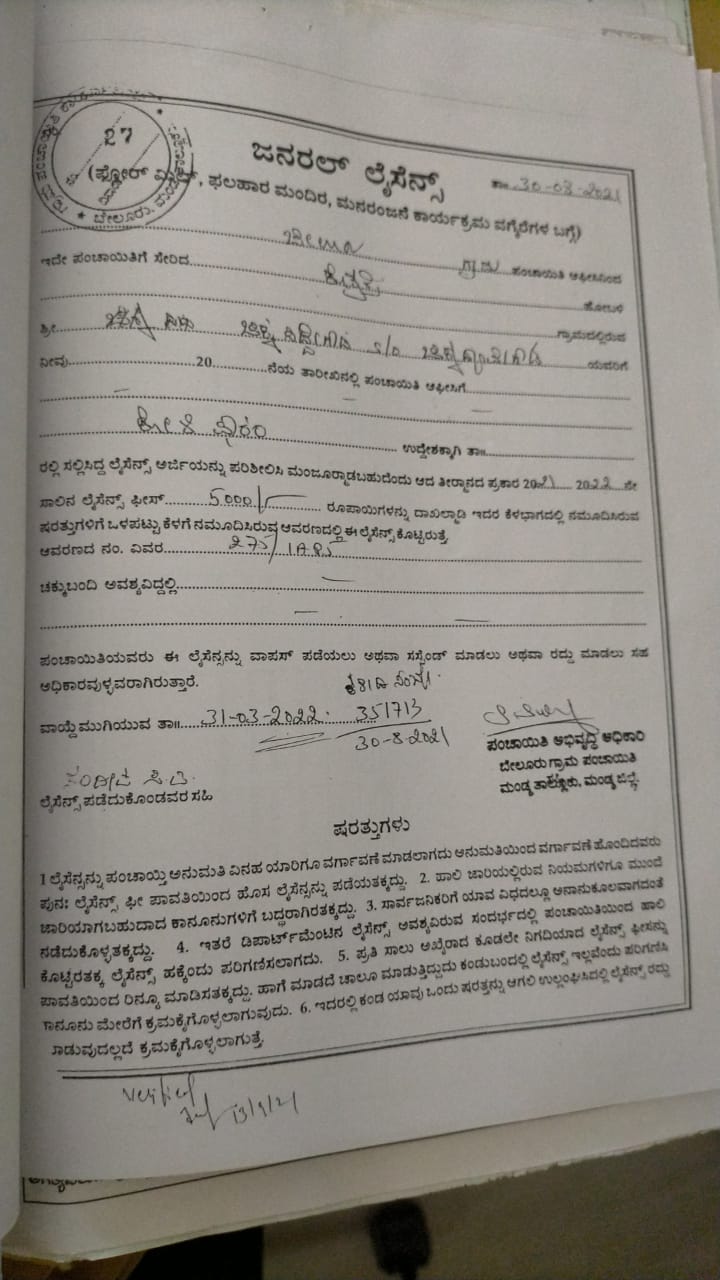 27
ಜನರಲ್ ಲೈಸೆನ್ಸ್
ತಾ॥ 30-08-2021
(ಫ್ಲೋರ್ ಮಿಲ್, ಫಲಹಾರ ಮಂದಿರ, ಮನರಂಜನೆ ಕಾರ್ಯಕ್ರಮ ವಗೈರೆಗಳ ಬಗ್ಗೆ)
ಗ್ರಾಮ ಪಂಚಾಯಿತಿ ಆಫೀಸಿನಿಂದ
ಇದೇ ಪಂಚಾಯಿತಿಗೆ ಸೇರಿದ
ಹೋಬಳಿ
ಗ್ರಾಮದಲ್ಲಿರುವ
ಶ್ರೀ S/O ಯವರಿಗೆ
ನೀವು 20 ನೆಯ ತಾರೀಖಿನಲ್ಲಿ ಪಂಚಾಯಿತಿ ಆಫೀಸಿಗೆ
ಕೋಳಿ ಫಾರಂ ಉದ್ದೇಶಕ್ಕಾಗಿ ತಾ॥
ರಲ್ಲಿ ಸಲ್ಲಿಸಿದ್ದ ಲೈಸೆನ್ಸ್ ಅರ್ಜಿಯನ್ನು ಪರಿಶೀಲಿಸಿ ಮಂಜೂರ್ಮಾಡಬಹುದೆಂದು ಆದ ತೀರ್ಮಾನದ ಪ್ರಕಾರ 2021 2022 ನೇ
ಸಾಲಿನ ಲೈಸೆನ್ಸ್ ಫೀಸ್ 5000/- ರೂಪಾಯಿಗಳನ್ನು ದಾಖಲ್ಮಾಡಿ ಇದರ ಕೆಳಭಾಗದಲ್ಲಿ ನಮೂದಿಸಿರುವ
ಷರತ್ತುಗಳಿಗೆ ಒಳಪಟ್ಟು ಕೆಳಗೆ ನಮೂದಿಸಿರುವ ಆವರಣದಲ್ಲಿ ಈ ಲೈಸೆನ್ಸ್ ಕೊಟ್ಟಿರುತ್ತೆ.
ಆವರಣದ ನಂ. ವಿವರ 275/1AP5
ಚಕ್ಕುಬಂದಿ ಅವಶ್ಯವಿದ್ದಲ್ಲಿ
ಪಂಚಾಯಿತಿಯವರು ಈ ಲೈಸೆನ್ಸನ್ನು ವಾಪಸ್ ಪಡೆಯಲು ಅಥವಾ ಸಸ್ಪೆಂಡ್ ಮಾಡಲು ಅಥವಾ ರದ್ದು ಮಾಡಲು ಸಹ
ಅಧಿಕಾರವುಳ್ಳವರಾಗಿರುತ್ತಾರೆ.
ರಶೀದಿ ಸಂಖ್ಯೆ
ವಾಯ್ದೆ ಮುಗಿಯುವ ತಾ॥ 31-03-2022. 351713
30-8-2021
ಪಂಚಾಯಿತಿ ಅಭಿವೃದ್ಧಿ ಅಧಿಕಾರಿ
ಬೇಲೂರು ಗ್ರಾಮ ಪಂಚಾಯಿತಿ
ಮಂಡ್ಯ ತಾಲ್ಲೂಕು, ಮಂಡ್ಯ ಜಿಲ್ಲೆ.
ಲೈಸೆನ್ಸ್ ಪಡೆದುಕೊಂಡವರ ಸಹಿ
ಷರತ್ತುಗಳು
1 ಲೈಸೆನ್ಸನ್ನು ಪಂಚಾಯ್ತಿ ಅನುಮತಿ ವಿನಹ ಯಾರಿಗೂ ವರ್ಗಾವಣೆ ಮಾಡಲಾಗದು ಅನುಮತಿಯಿಂದ ವರ್ಗಾವಣೆ ಹೊಂದಿದವರು
ಪುನಃ ಲೈಸೆನ್ಸ್ ಫೀ ಪಾವತಿಯಿಂದ ಹೊಸ ಲೈಸೆನ್ಸನ್ನು ಪಡೆಯತಕ್ಕದ್ದು. 2. ಹಾಲಿ ಜಾರಿಯಲ್ಲಿರುವ ನಿಯಮಗಳಿಗೂ ಮುಂದೆ
ಜಾರಿಯಾಗಬಹುದಾದ ಕಾನೂನುಗಳಿಗೆ ಬದ್ಧರಾಗಿರತಕ್ಕದ್ದು. 3. ಸಾರ್ವಜನಿಕರಿಗೆ ಯಾವ ವಿಧದಲ್ಲೂ ಅನಾನುಕೂಲವಾಗದಂತೆ
ನಡೆದುಕೊಳ್ಳತಕ್ಕದ್ದು. 4. ಇತರೆ ಡಿಪಾರ್ಟ್‌ಮೆಂಟಿನ ಲೈಸೆನ್ಸ್ ಅವಶ್ಯವಿರುವ ಸಂದರ್ಭದಲ್ಲಿ ಪಂಚಾಯಿತಿಯಿಂದ ಹಾಲಿ
ಕೊಟ್ಟಿರತಕ್ಕ ಲೈಸೆನ್ಸ್ ಹಕ್ಕೆಂದು ಪರಿಗಣಿಸಲಾಗದು. 5. ಪ್ರತಿ ಸಾಲು ಅಖೈರಾದ ಕೂಡಲೇ ನಿಗದಿಯಾದ ಲೈಸೆನ್ಸ್ ಫೀಸನ್ನು
ಪಾವತಿಯಿಂದ ರಿನ್ಯೂ ಮಾಡಿಸತಕ್ಕದ್ದು. ಹಾಗೆ ಮಾಡದೆ ಚಾಲೂ ಮಾಡುತ್ತಿದ್ದುದು ಕಂಡುಬಂದಲ್ಲಿ ಲೈಸೆನ್ಸ್ ಇಲ್ಲವೆಂದು ಪರಿಗಣಿಸಿ
ಕಾನೂನು ಮೇರೆಗೆ ಕ್ರಮಕೈಗೊಳ್ಳಲಾಗುವುದು. 6. ಇದರಲ್ಲಿ ಕಂಡ ಯಾವು ಒಂದು ಷರತ್ತನ್ನು ಆಗಲಿ ಉಲ್ಲಂಘಿಸಿದಲ್ಲಿ ಲೈಸೆನ್ಸ್ ರದ್ದು
ಮಾಡುವುದಲ್ಲದೆ ಕ್ರಮಕೈಗೊಳ್ಳಲಾಗುತ್ತೆ.
Verified
13/9/21